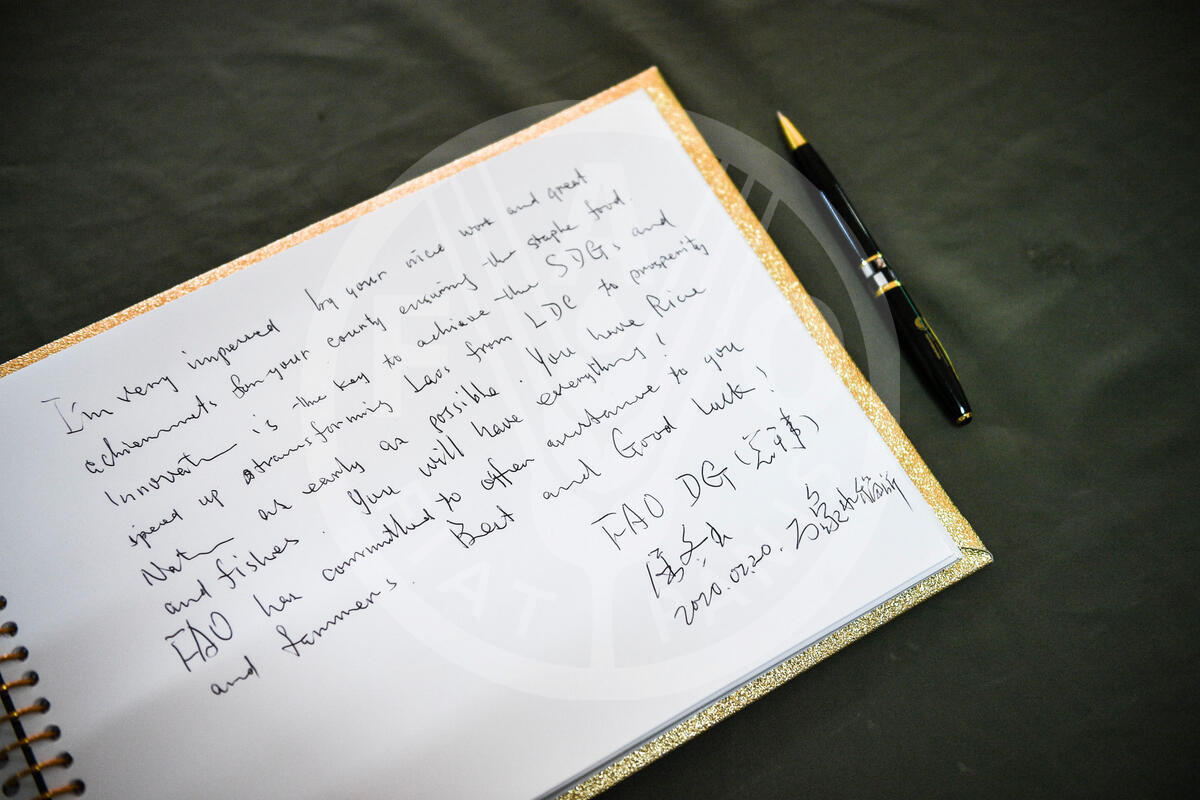 I'm very impressed by your nice work and great
achievements for your county ensuring the staple food.
Innovation is the key to achieve the SDGs and
speed up transforming Laos from LDC to prosperity
Nation as early as possible. You have Rice
and fishes. You will have everything!
FAO has committed to offer assistance to you
and farmers. Best and Good luck!
FAO DG (总干事)
屈冬玉
2020.02.20.
FIAT PANIS